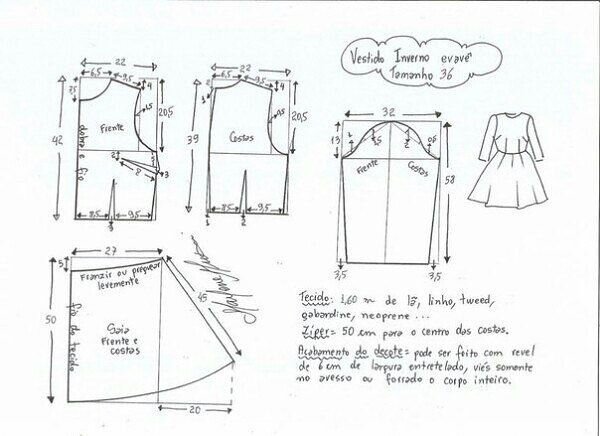 Vestido Inverno evavê
Tamanho 36
22
6,5
9,5
4
7,5
1,5
20,5
42
Frente
dobra e fio
2
8
3
8,5
9,5
3
22
2
6,5
9,5
4
1
20,5
39
Costas
8,5
9,5
1
2
32
13
1
1,5
2
0,5
Frente
Costas
58
3,5
3,5
27
5
Franzir ou preguear
levemente
45
50
fio do tecido
Saia
Frente e
costas
20
Tecido: 1,60 m de lã, linho, tweed,
gabardine, neoprene ...
Zíper = 50 cm para o centro das costas.
Acabamento do decote = pode ser feito com revel
de 6 cm de largura entretelado, viés somente
no avesso ou forrado o corpo inteiro.